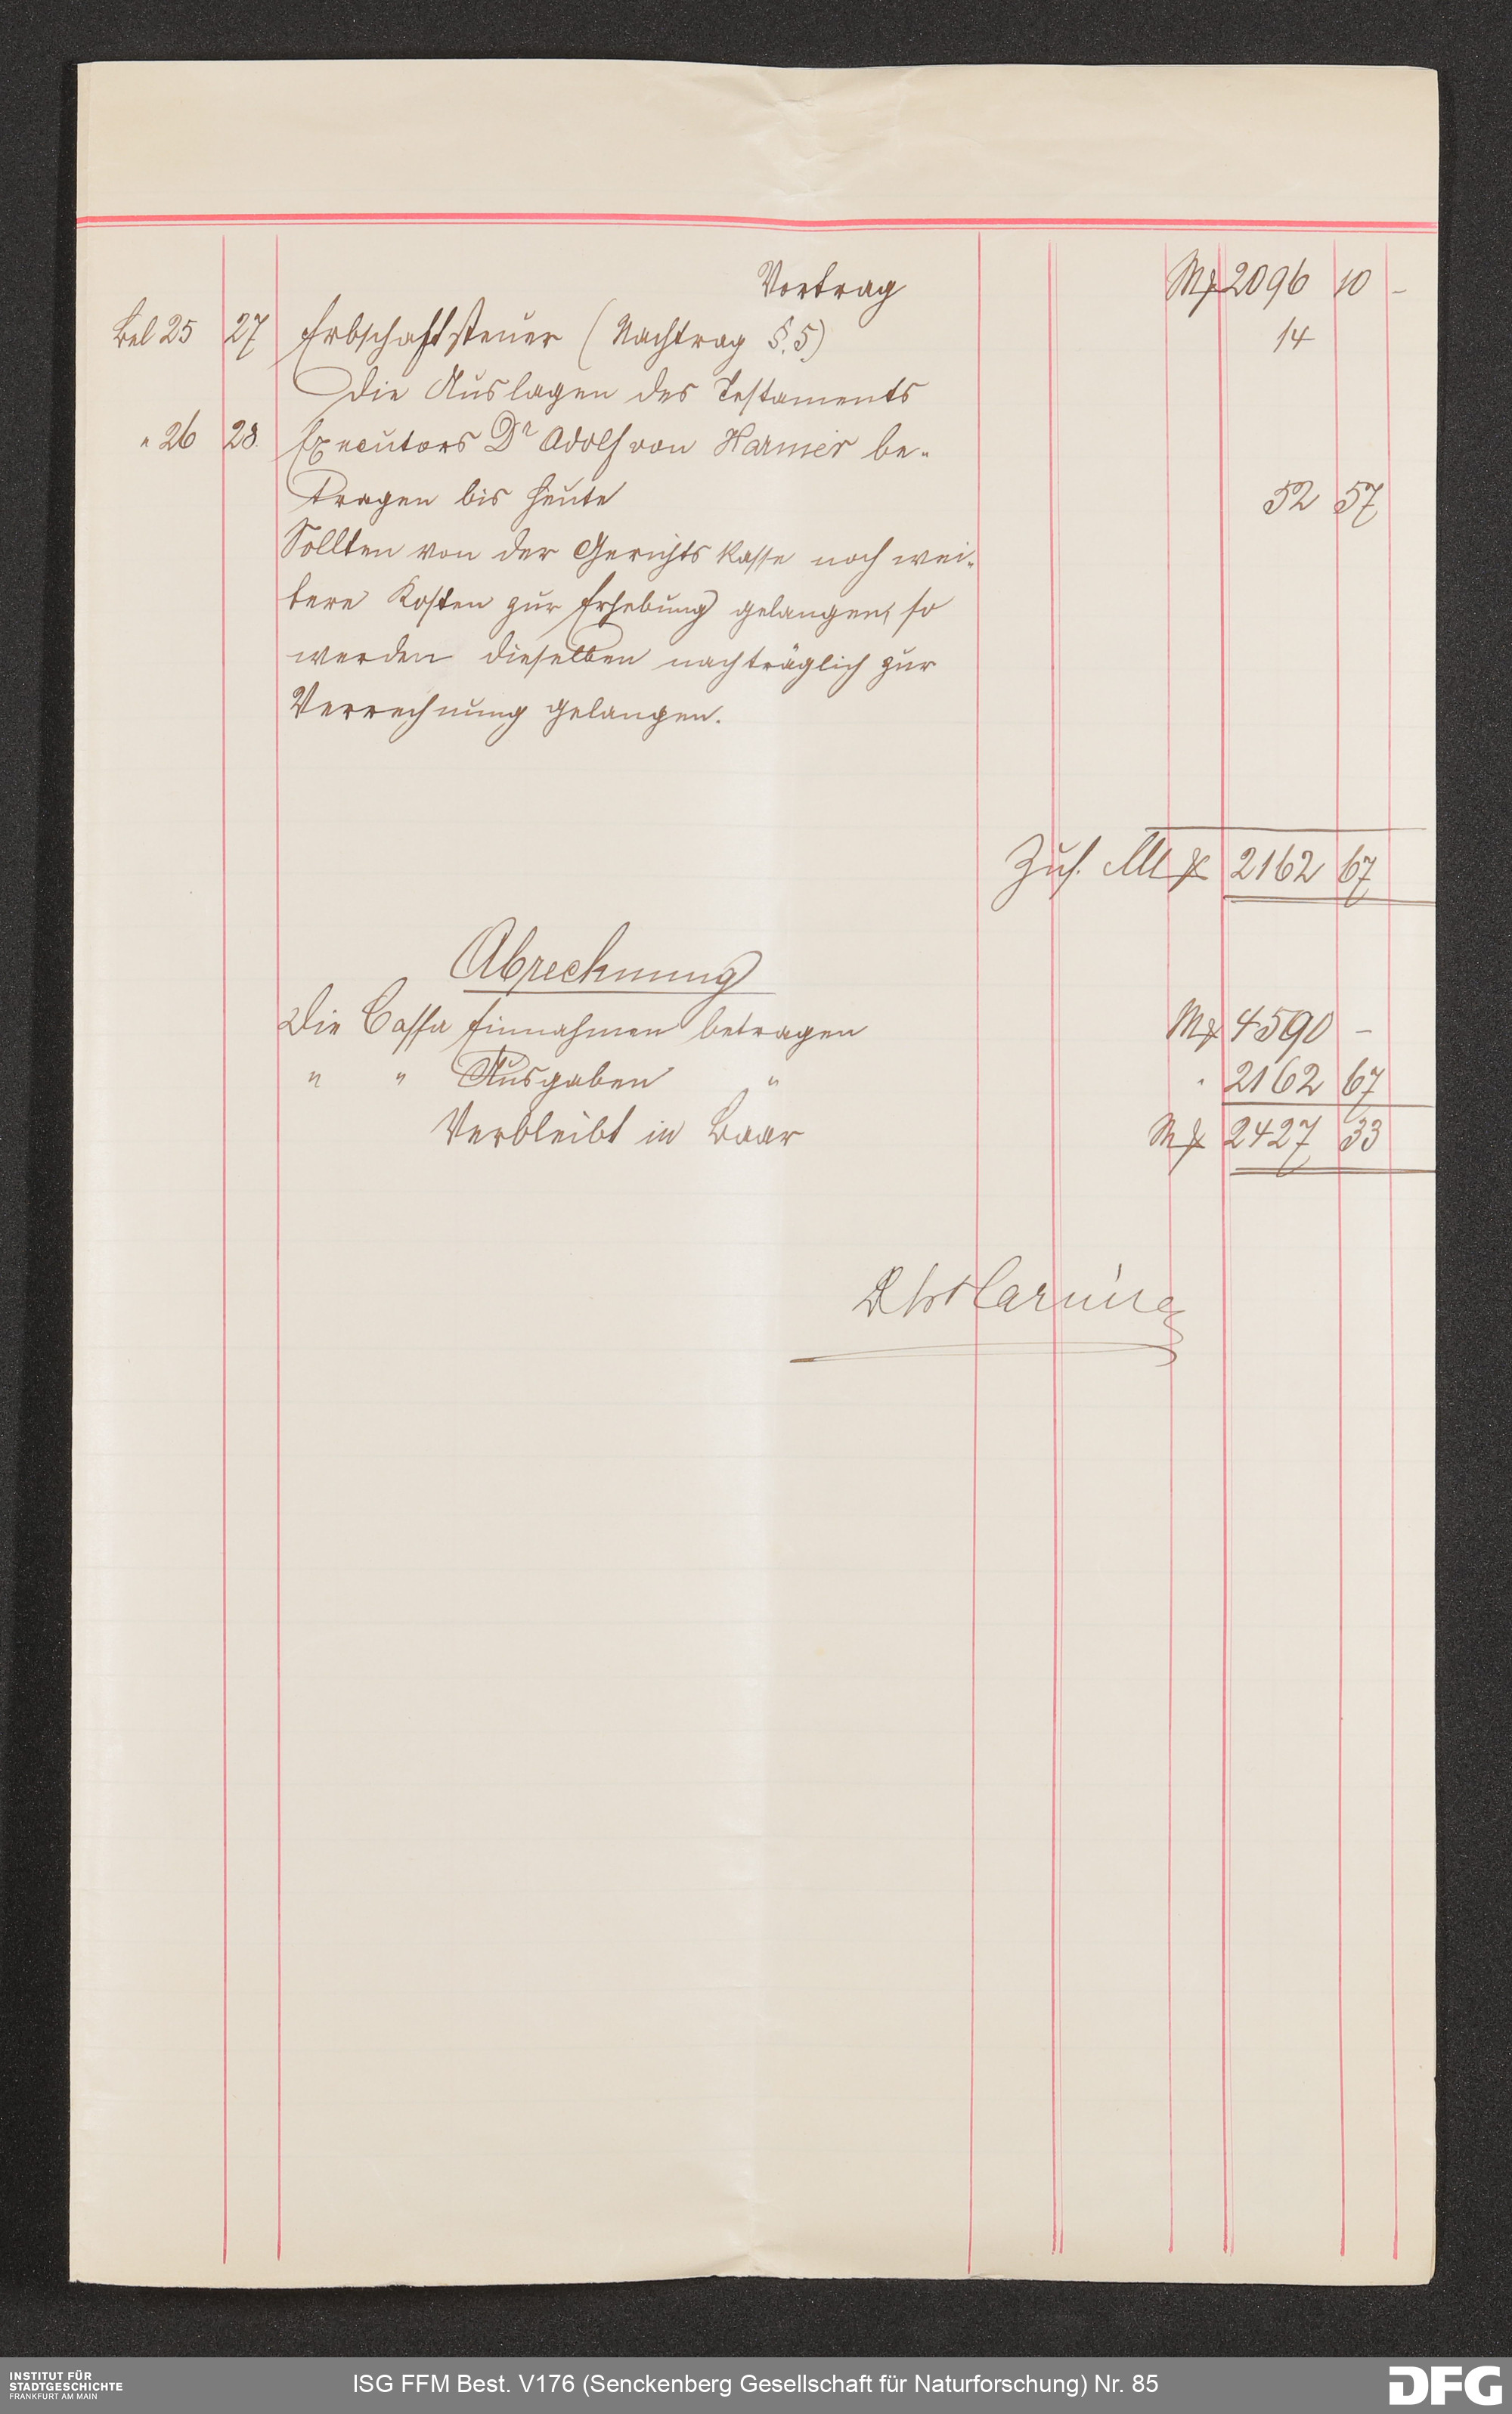 Vortrag Mk 2096 10 –
Bel 25 27 Erbschaftsteuer (Nachtrag §. 5) 14
Die Auslagen des Testaments
" 26 28. Executors Dr Adolf von Harnier be-
tragen bis heute 52 57
Sollten von der Gerichts Kasse noch wei-
tere Kosten zur Erhebung gelangen, so
werden dieselben nachträglich zur
Verrechnung gelangen.
Zus. Mk 2162 67
Abrechnung
Die Cassa Einnahmen betragen Mk 4590 –
" " Ausgaben " " 2162 67
Verbleibt in Baar Mk 2427 33
INSTITUT FÜR
STADTGESCHICHTE
FRANKFURT AM MAIN
ISG FFM Best. V176 (Senckenberg Gesellschaft für Naturforschung) Nr. 85
DFG